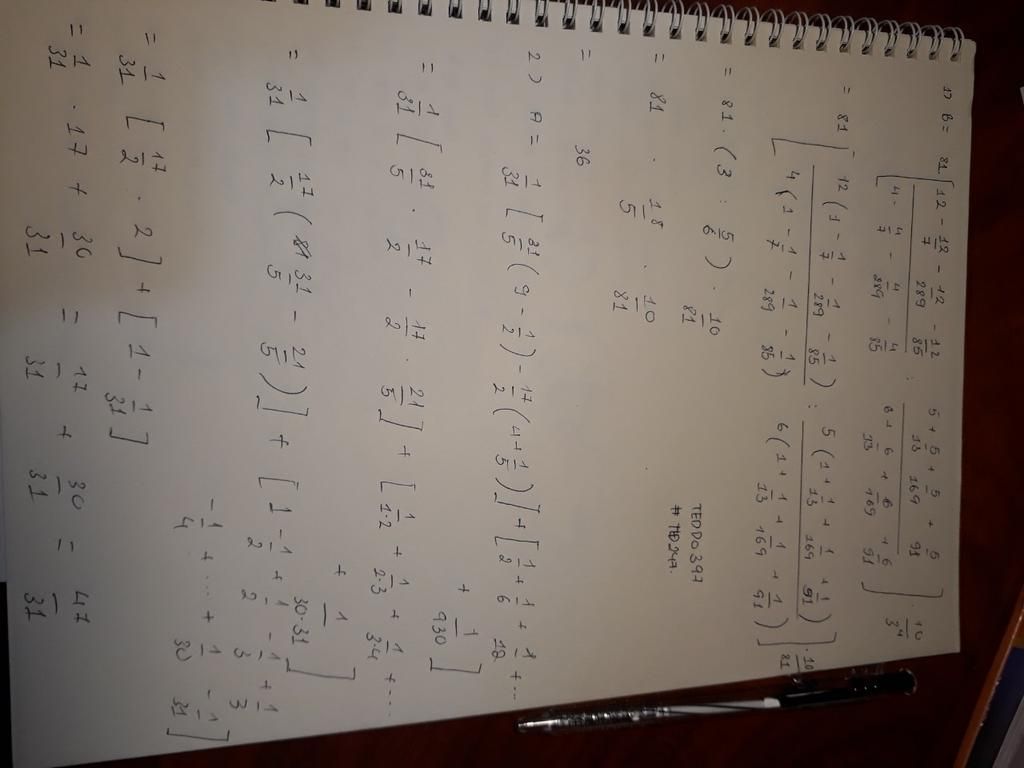 1) B = 81 [ (12 - 12/7 - 12/289 - 12/85) / (4 - 4/7 - 4/289 - 4/85) : (5 + 5/13 + 5/169 + 5/91) / (6 + 6/13 + 6/169 + 6/91) ] . 10/3^4
= 81 [ 12 (1 - 1/7 - 1/289 - 1/85) / 4 (1 - 1/7 - 1/289 - 1/85) : 5 (1 + 1/13 + 1/169 + 1/91) / 6 (1 + 1/13 + 1/169 + 1/91) ] . 10/81
= 81 . (3 : 5/6) . 10/81
TEDDO397
= 81 . 18/5 . 10/81
= 36
2) A = 1/31 [ 31/5 (9 - 1/2) - 17/2 (4 + 1/5) ] + [ 1/2 + 1/6 + 1/12 + ... + 1/930 ]
= 1/31 [ 31/5 . 17/2 - 17/2 . 21/5 ] + [ 1/1.2 + 1/2.3 + 1/3.4 + ... + 1/30.31 ]
= 1/31 [ 17/2 ( 31/5 - 21/5 ) ] + [ 1 - 1/2 + 1/2 - 1/3 + 1/3 - 1/4 + ... + 1/30 - 1/31 ]
= 1/31 [ 17/2 . 2 ] + [ 1 - 1/31 ]
= 1/31 . 17 + 30/31 = 17/31 + 30/31 = 47/31